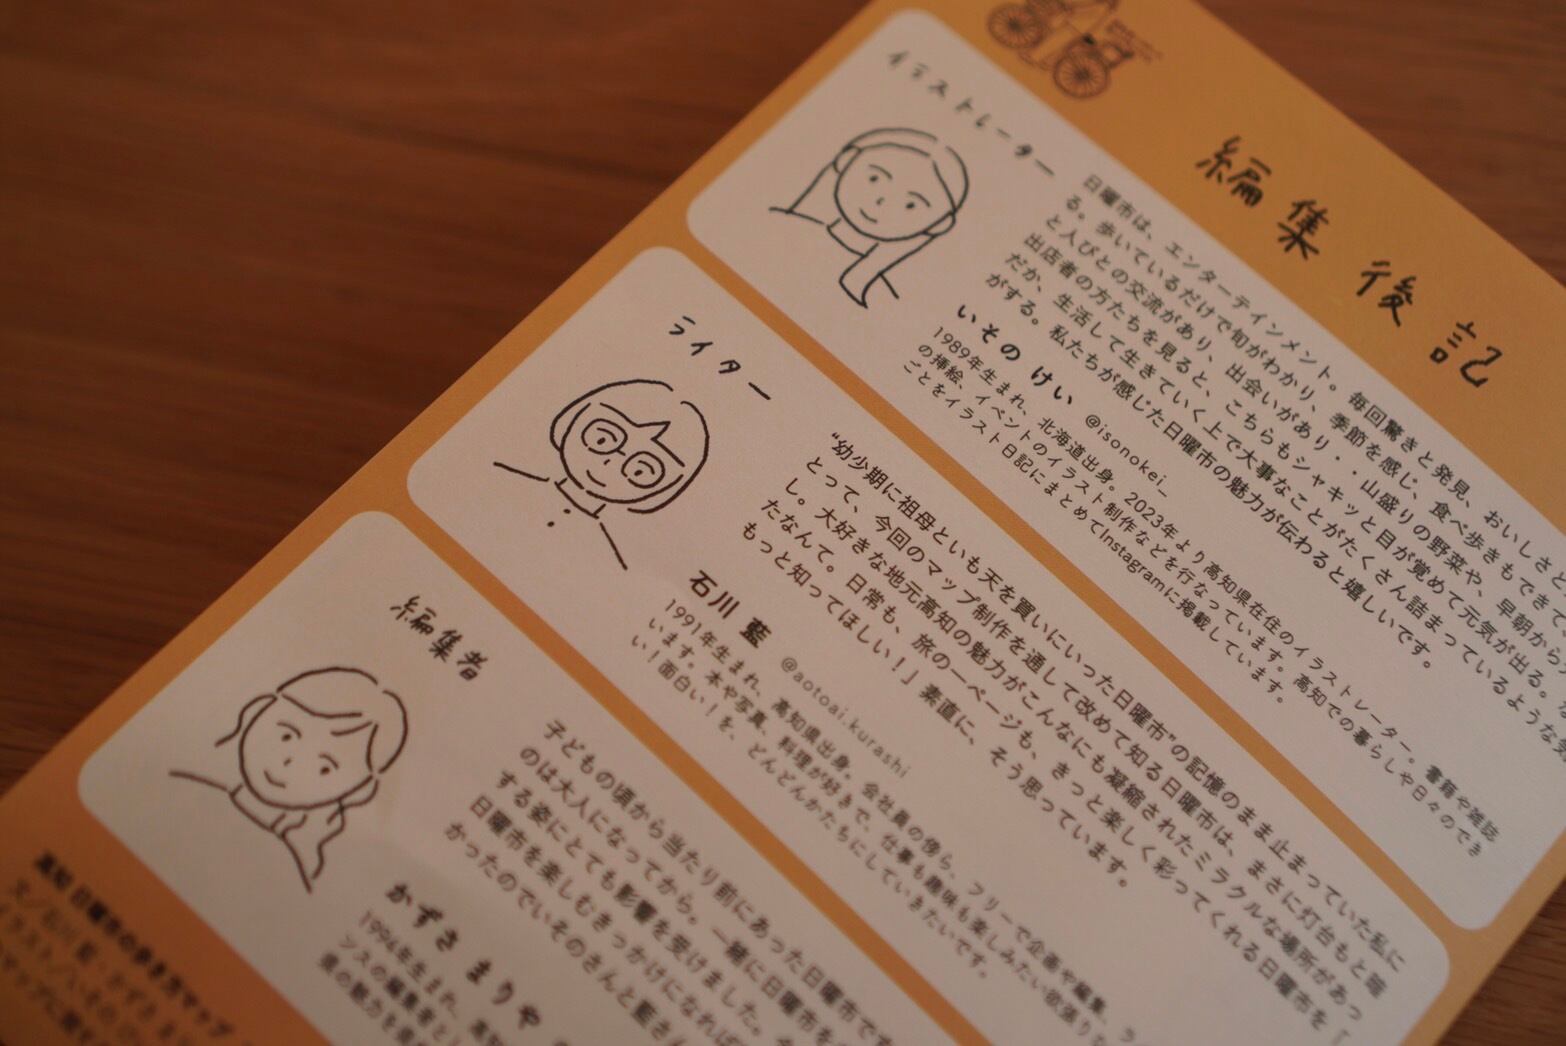 編集後記
イラストレーター
日曜市は、エンターテインメント。毎回驚きと発見、おいしさと
る。歩いているだけで旬がわかり、季節を感じ、食べ歩きもできて
と人びとの交流があり、出会いがあり・・山盛りの野菜や、早朝から
出店者の方たちを見ると、こちらもシャキッと目が覚めて元気が出る。
だか、生活して生きていく上で大事なことがたくさん詰まっているような気
がする。私たちが感じた日曜市の魅力が伝わると嬉しいです。
いその けい @isonokei_
1989年生まれ、北海道出身。2023年より高知県在住のイラストレーター。書籍や雑誌
の挿絵、イベントのイラスト制作などを行なっています。高知での暮らしや日々のでき
ごとをイラスト日記にまとめてInstagramに掲載しています。
ライター
“幼少期に祖母といも天を買いにいった日曜市”の記憶のまま止まっていた私に
とって、今回のマップ制作を通して改めて知る日曜市は、まさに灯台もと暗
し。大好きな地元高知の魅力がこんなにも凝縮されたミラクルな場所があっ
たなんて。日常も、旅の一ページも、きっと楽しく彩ってくれる日曜市を「
もっと知ってほしい！」素直に、そう思っています。
石川 藍 @aotoai.kurashi
1991年生まれ、高知県出身。会社員の傍ら、フリーで企画や編集、ラ
います。本や写真、料理が好きで、仕事も趣味も楽しみたい欲張りな
い！面白い！を、どんどんかたちにしていきたいです。
編集者
子どもの頃から当たり前にあった日曜市で
のは大人になってから。一緒に日曜市を
する姿にとても影響を受けました。
日曜市を楽しむきっかけになれば
かったのでいそのさんと藍さ
かずさ まりや
1994年生まれ、高知
ンスの編集者とし
県の魅力を
高知 日曜市の歩き方マップ
文／石川 藍・かずさ ま
イラスト／いその け